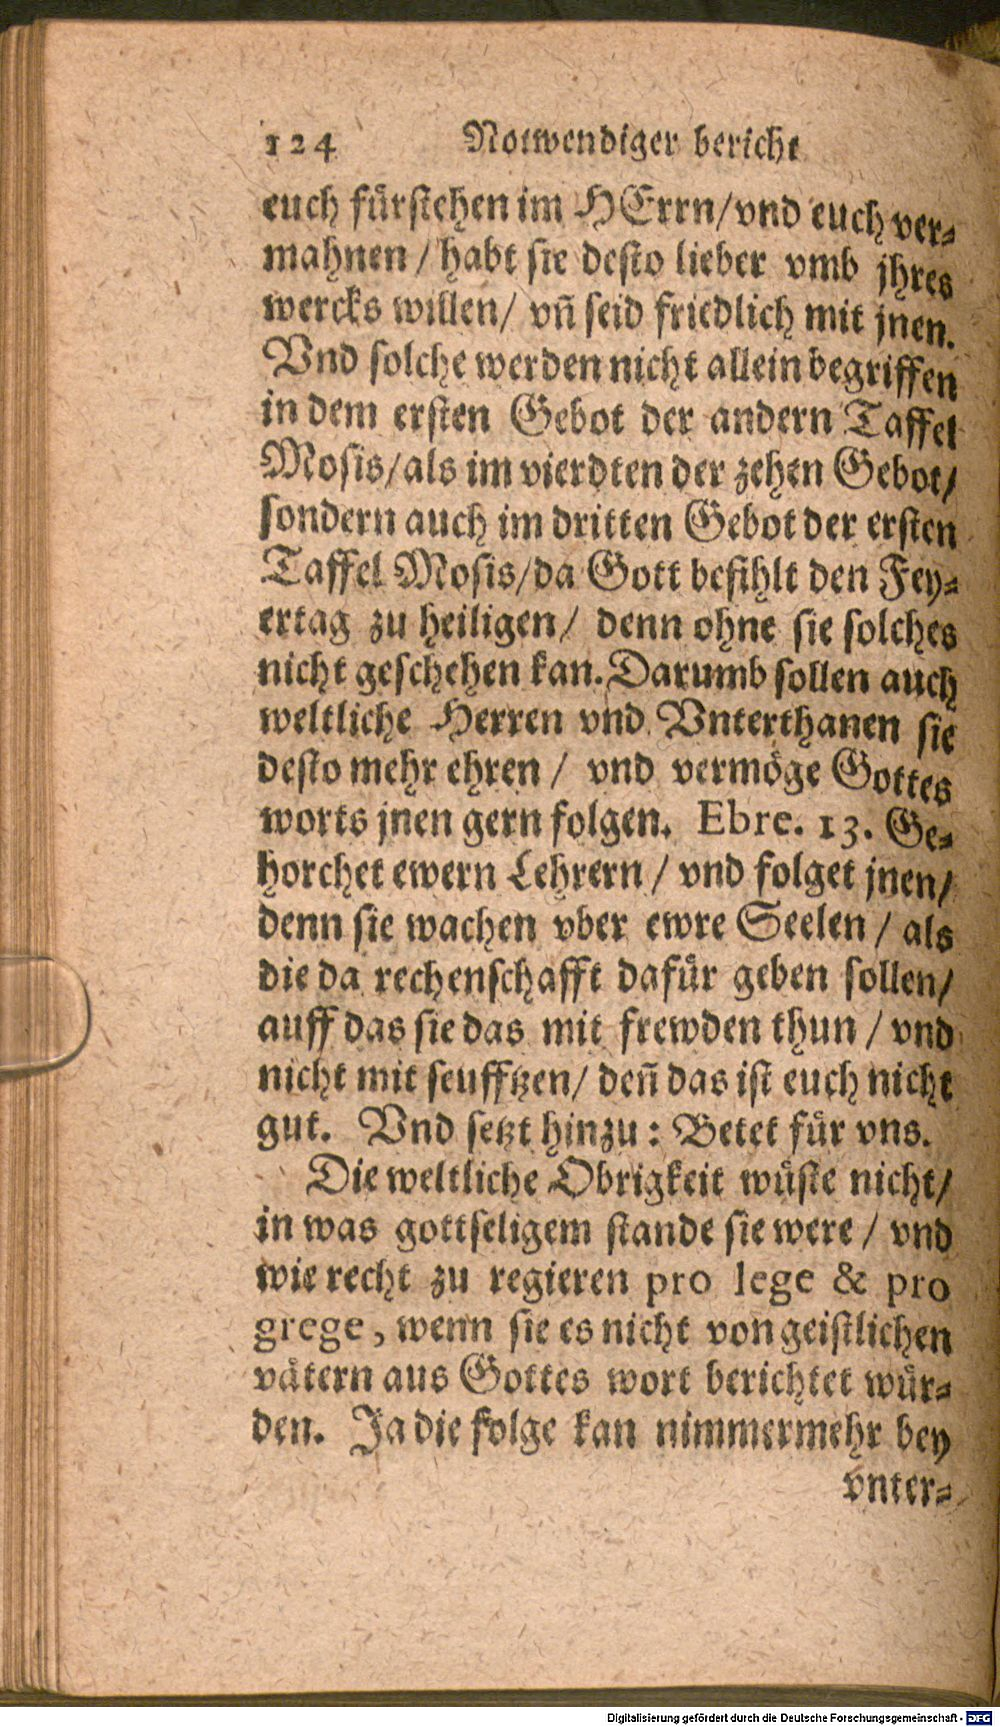 124 Notwendiger bericht
euch fürstehen im HErrn/vnd euch ver-
mahnen / habt sie desto lieber vmb jhres
wercks willen/ vñ seid friedlich mit jnen.
Vnd solche werden nicht allein begriffen
in dem ersten Gebot der andern Taffel
Mosis/als im vierdten der zehen Gebot/
sondern auch im dritten Gebot der ersten
Taffel Mosis/da Gott befihlt den Fey-
ertag zu heiligen/ denn ohne sie solches
nicht geschehen kan. Darumb sollen auch
weltliche Herren vnd Vnterthanen sie
desto mehr ehren / vnd vermöge Gottes
worts jnen gern folgen. Ebre. 13. Ge-
horchet ewern Lehrern / vnd folget jnen/
denn sie wachen vber ewre Seelen / als
die da rechenschafft dafür geben sollen/
auff das sie das mit frewden thun / vnd
nicht mit seufftzen/ deñ das ist euch nicht
gut. Vnd setzt hinzu: Betet für vns.
Die weltliche Obrigkeit wüste nicht/
in was gottseligem stande sie were / vnd
wie recht zu regieren pro lege & pro
grege, wenn sie es nicht von geistlichen
vätern aus Gottes wort berichtet wür-
den. Ja die folge kan nimmermehr bey
vnter-
Digitalisierung gefördert durch die Deutsche Forschungsgemeinschaft - DFG